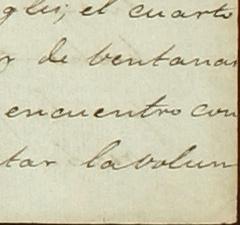 glés; el cuarto
r de ventanas
encuentro con
tar la volun